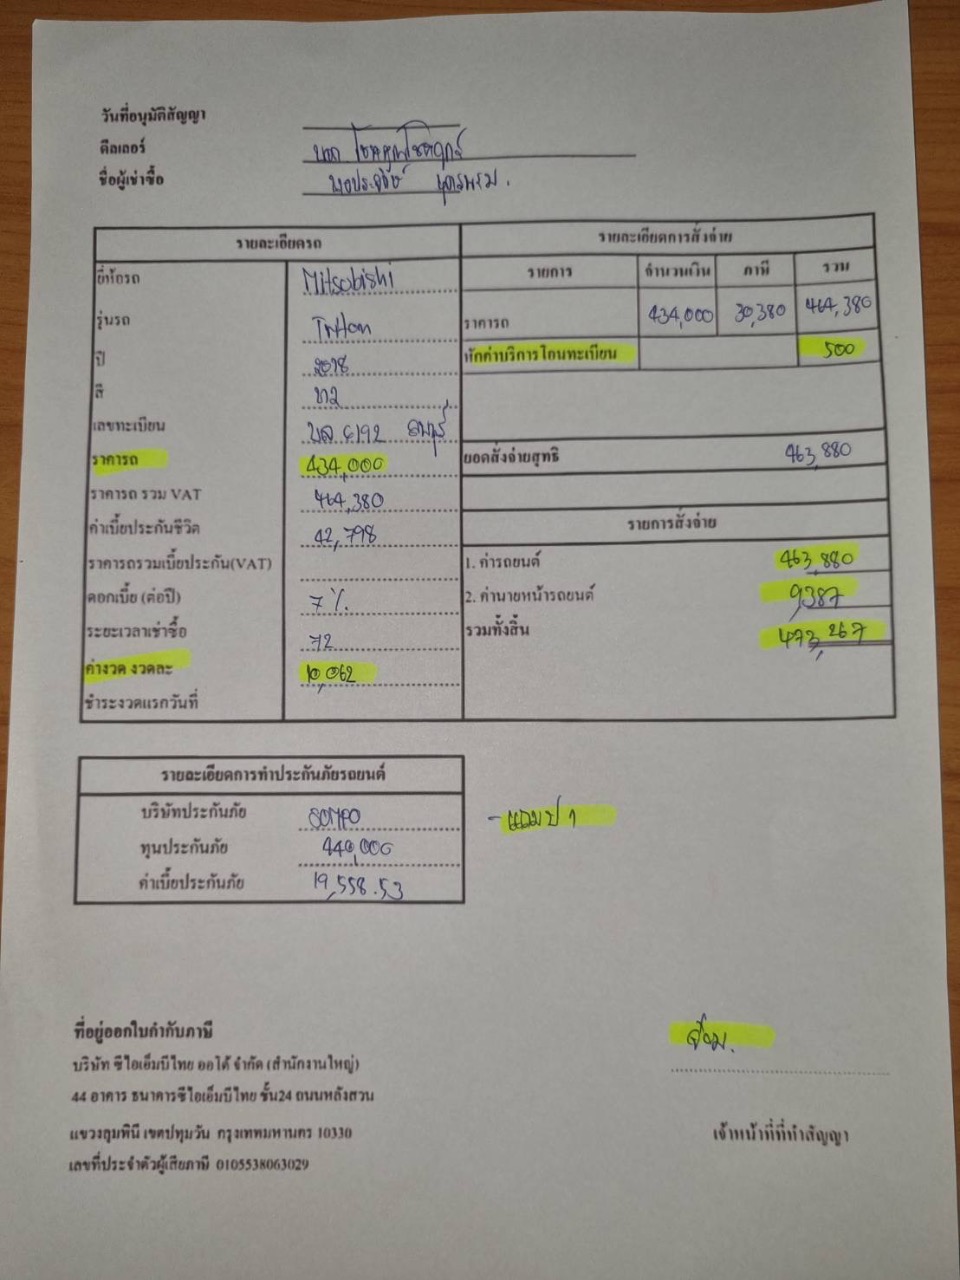 วันที่อนุมัติสัญญา
ดีลเลอร์
ชื่อผู้เช่าซื้อ
รายละเอียดรถ
ยี่ห้อรถ Mitsubishi
รุ่นรถ Triton
ปี 2018
สี เทา
เลขทะเบียน
ราคารถ 434,000
ราคารถ รวม VAT 464,380
ค่าเบี้ยประกันชีวิต 42,798
ราคารถรวมเบี้ยประกัน(VAT)
ดอกเบี้ย (ต่อปี) 7%
ระยะเวลาเช่าซื้อ 72
ค่างวด งวดละ 10,062
ชำระงวดแรกวันที่
รายละเอียดการสั่งจ่าย
รายการ จำนวนเงิน ภาษี รวม
ราคารถ 434,000 30,380 464,380
หักค่าบริการโอนทะเบียน 500
ยอดสั่งจ่ายสุทธิ 463,880
รายการสั่งจ่าย
1. ค่ารถยนต์ 463,880
2. ค่านายหน้ารถยนต์ 9,387
รวมทั้งสิ้น 473,267
รายละเอียดการทำประกันภัยรถยนต์
บริษัทประกันภัย SOMPO
ทุนประกันภัย 440,000
ค่าเบี้ยประกันภัย 19,558.53
- แถมป 1
ที่อยู่ออกใบกำกับภาษี
บริษัท ซีไอเอ็มบีไทย ออโต้ จำกัด (สำนักงานใหญ่)
44 อาคาร ธนาคารซีไอเอ็มบีไทย ชั้น24 ถนนหลังสวน
แขวงลุมพินี เขตปทุมวัน กรุงเทพมหานคร 10330
เลขที่ประจำตัวผู้เสียภาษี 0105538063029
เจ้าหน้าที่ที่ทำสัญญา